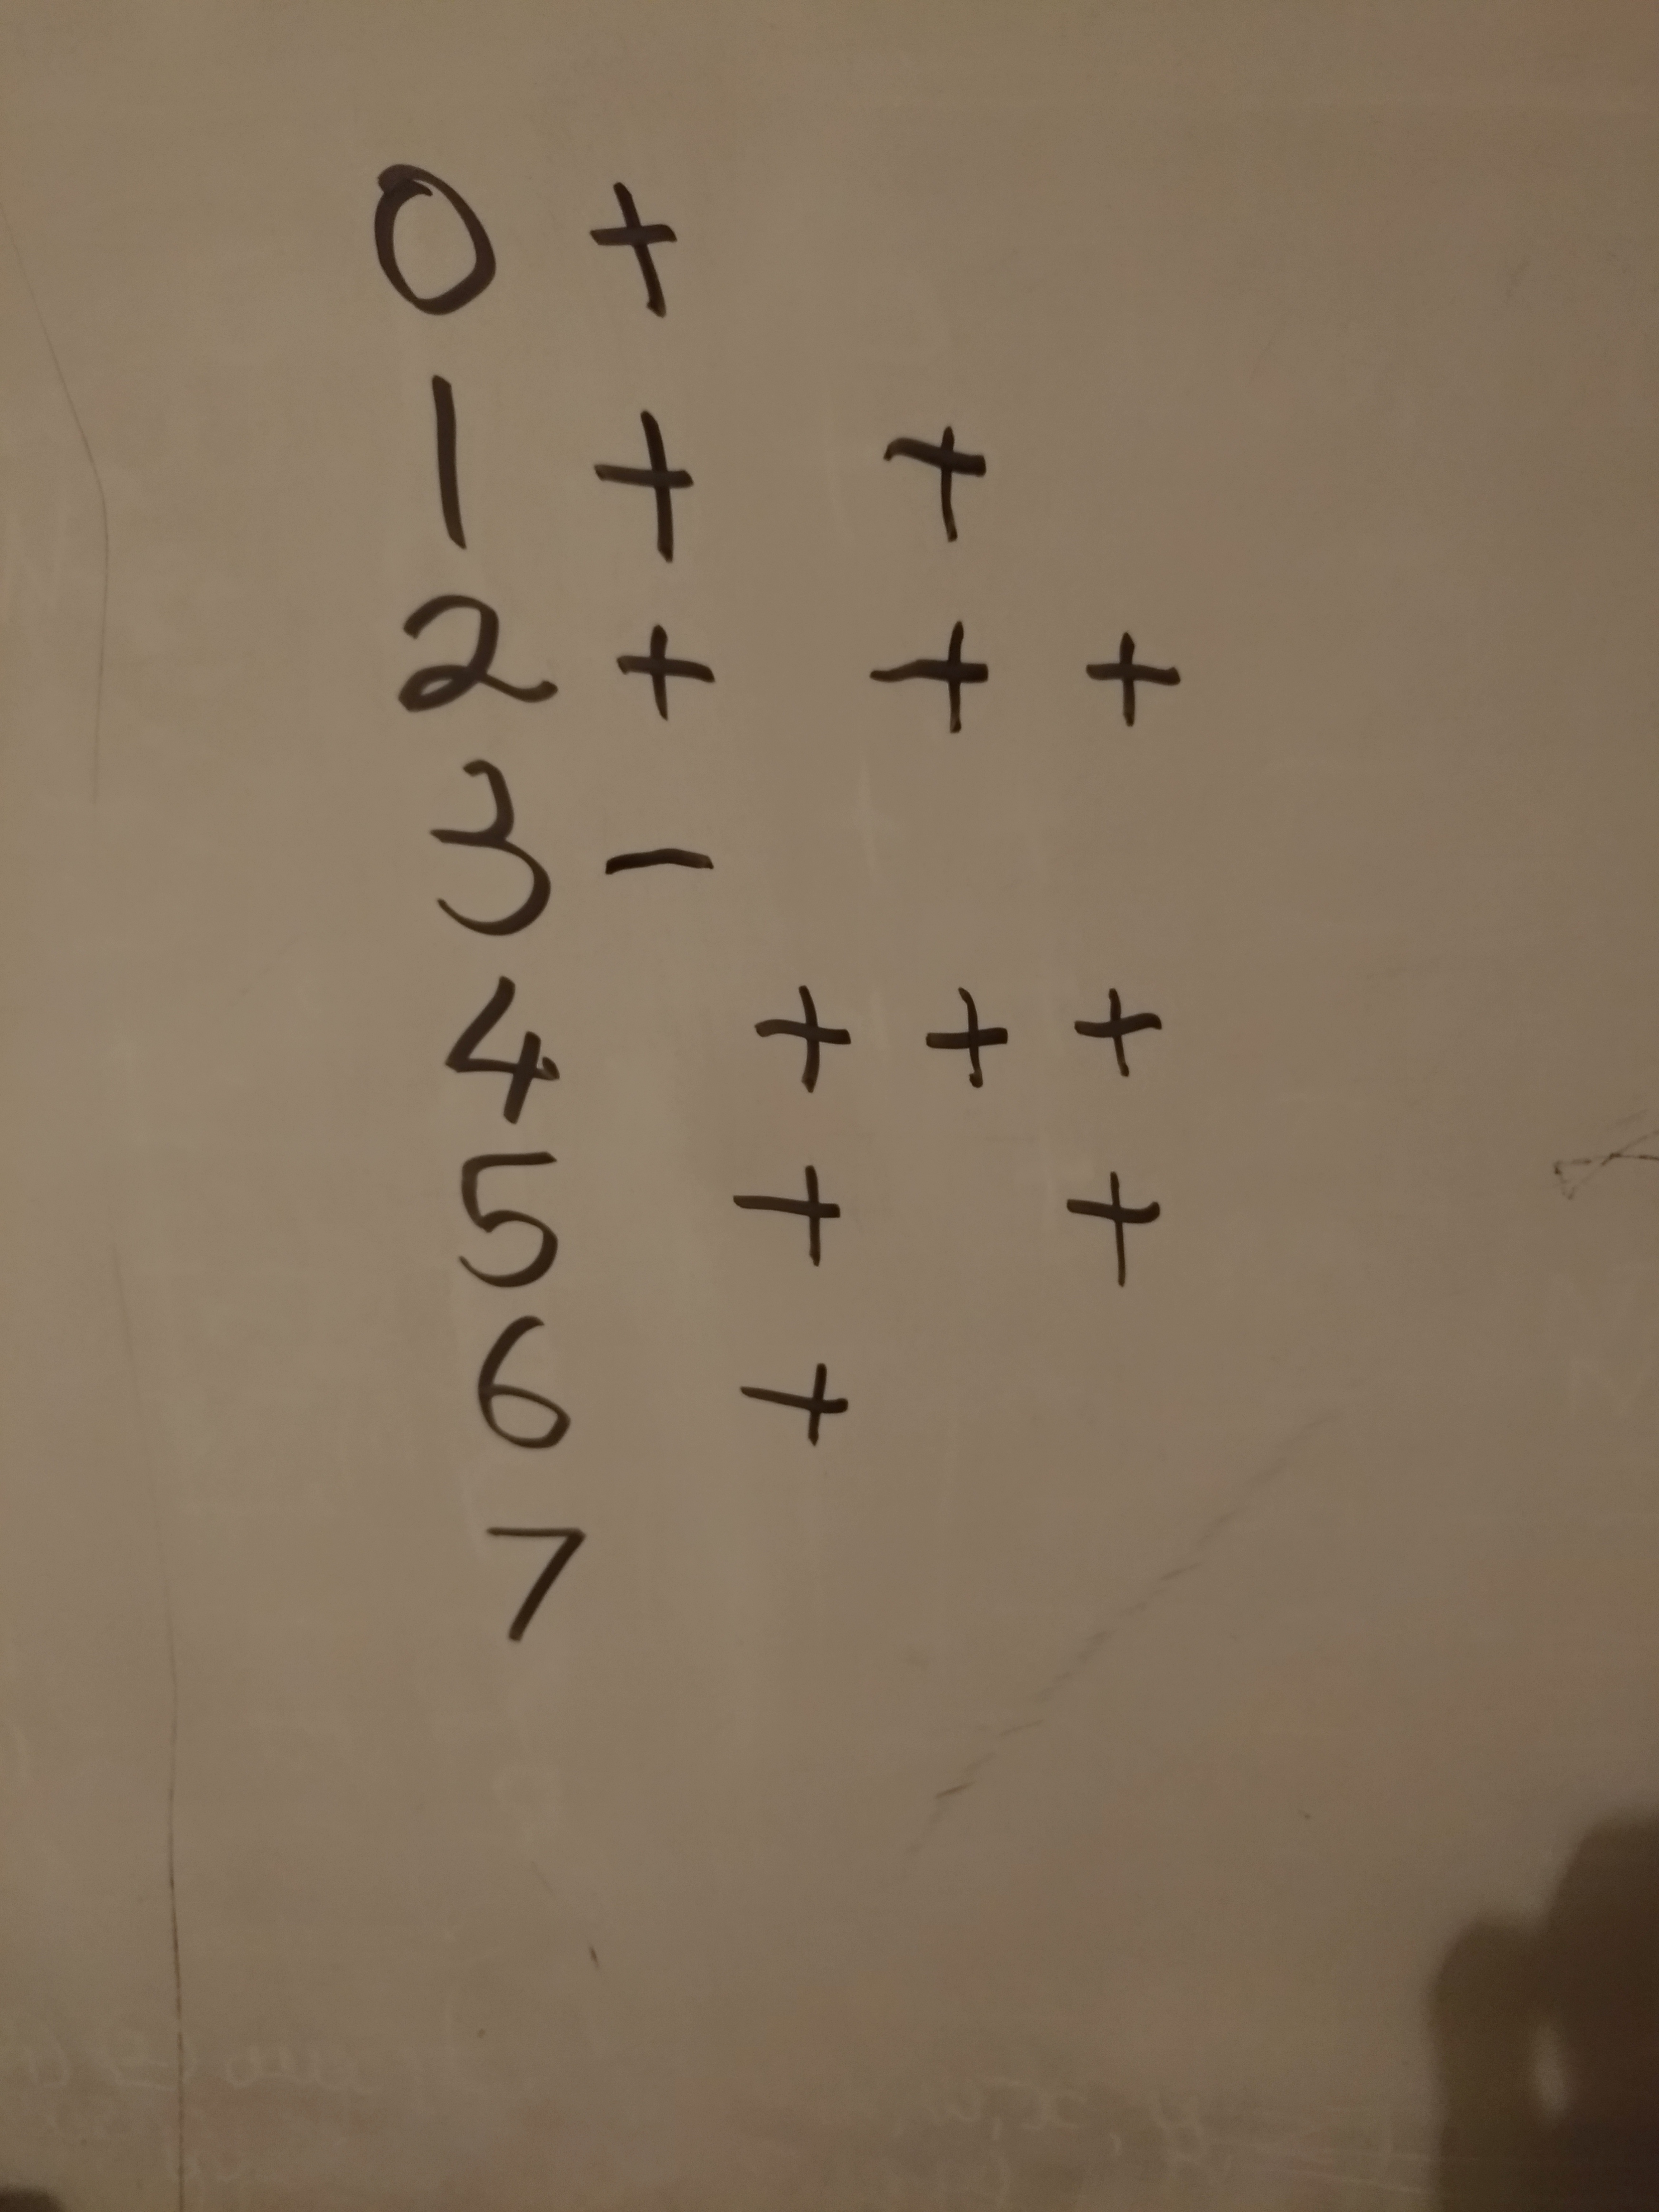 0 +
1 + +
2 + + +
3 -
4 + + +
5 + +
6 +
7